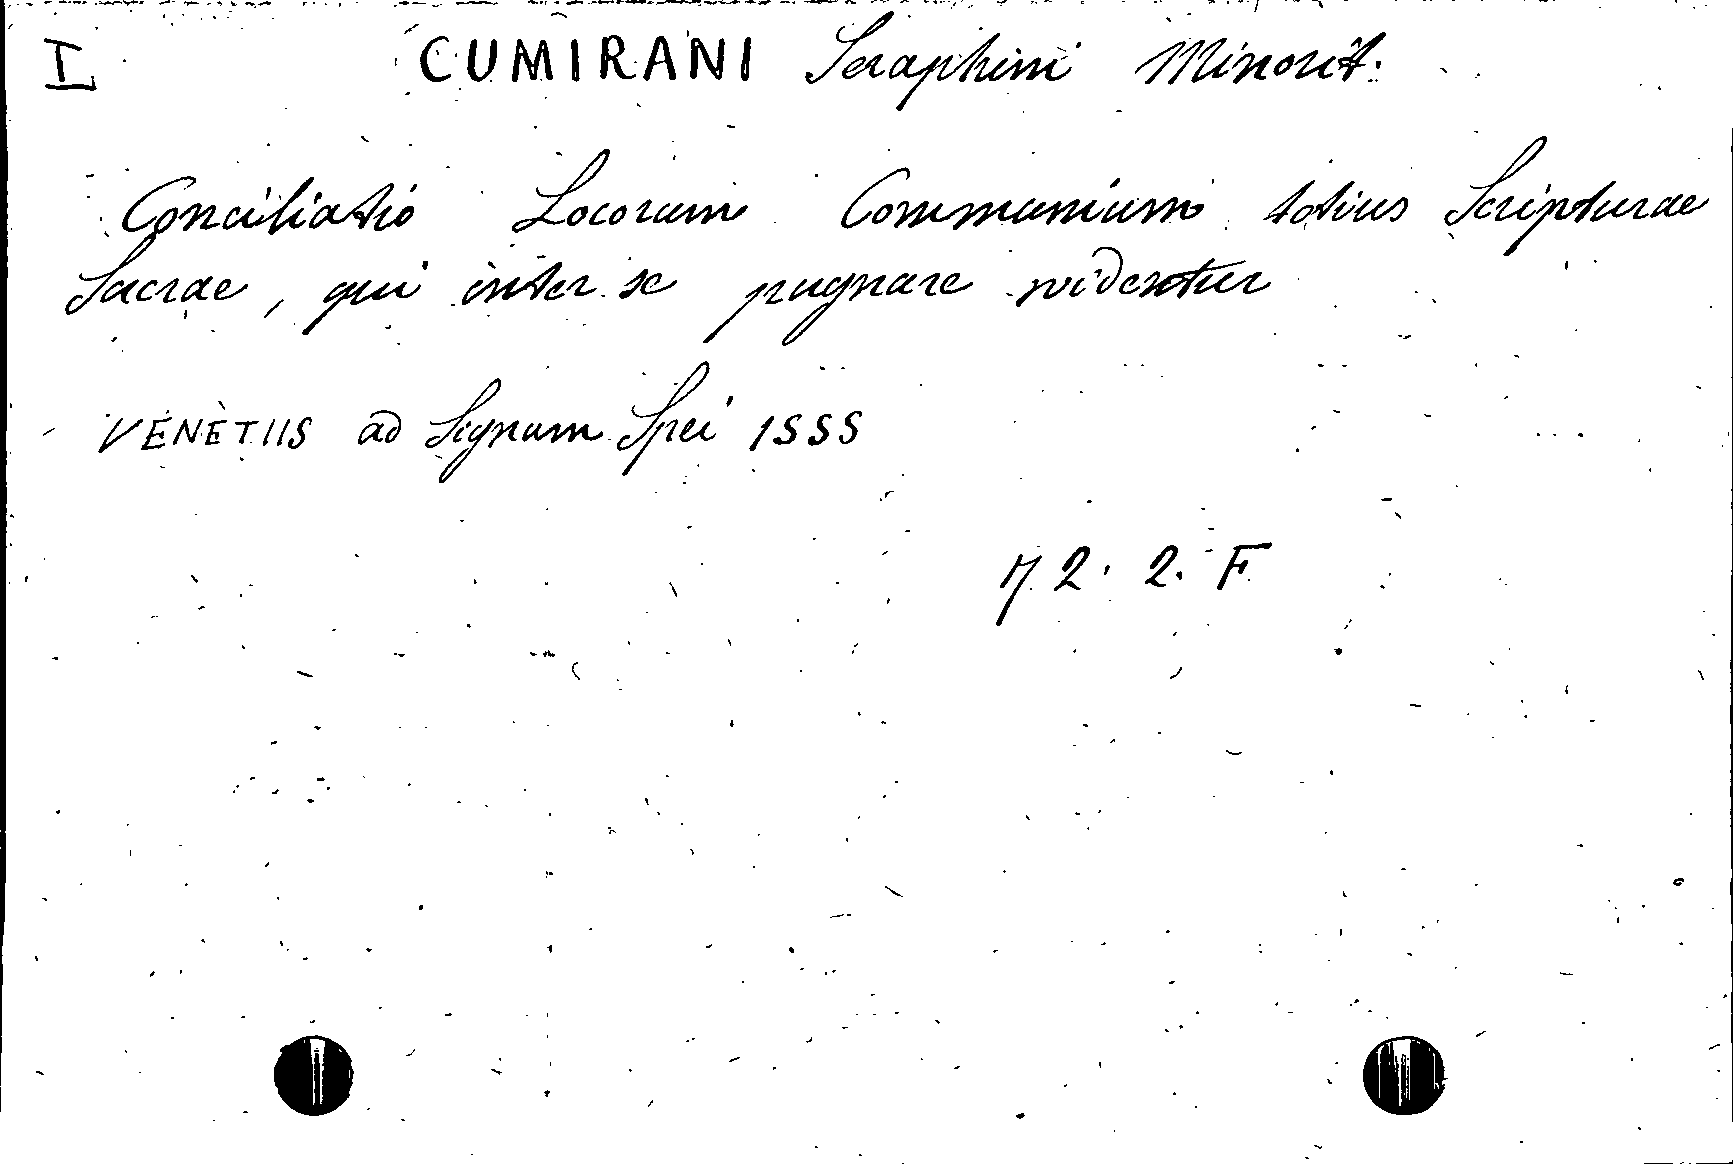 I CUMIRANI Seraphini Minorit.
Conciliatio Locorum Communium totius Scripturae
Sacrae, qui inter se pugnare videntur
VENETIIS ad Signum Spei 1555
72. 2. F